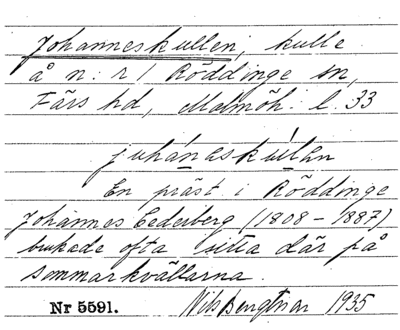 Johanneskullen, kulle
å n:r 1 Röddinge sn,
Färs hd, Malmöh. l. 33
juhánaskúlan
En präst i Röddinge
Johannes Cederberg (1808-1887)
brukade ofta sitta där på
sommarkvällarna.
Nr 5591. Nils Bengtsson 1935